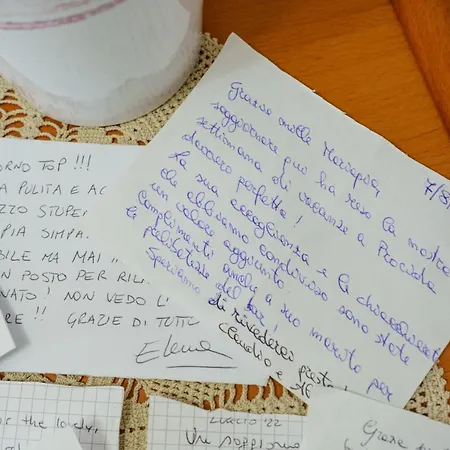 Grazie mille Mariapia
7/8
soggiornare qui ha reso la nostra
settimana di vacanze a Procida
davvero perfetta!
La sua accoglienza e le chiacchierate
che abbiamo condiviso sono state
un valore aggiunto.
Complimenti anche a suo marito per
le prelibatezze del bar!
Speriamo di rivederci presto!
Claudio e
ORNO TOP !!!
A PULITA E AC
ZZO STUPE
PIA SIMPA.
BILE MA MAI
N POSTO PER RIL
VATO! NON VEDO L'
RE!! GRAZIE DI TUTT
Elena
or the lovely,
LUGLIO '22
Un soggiorno
Grazie per